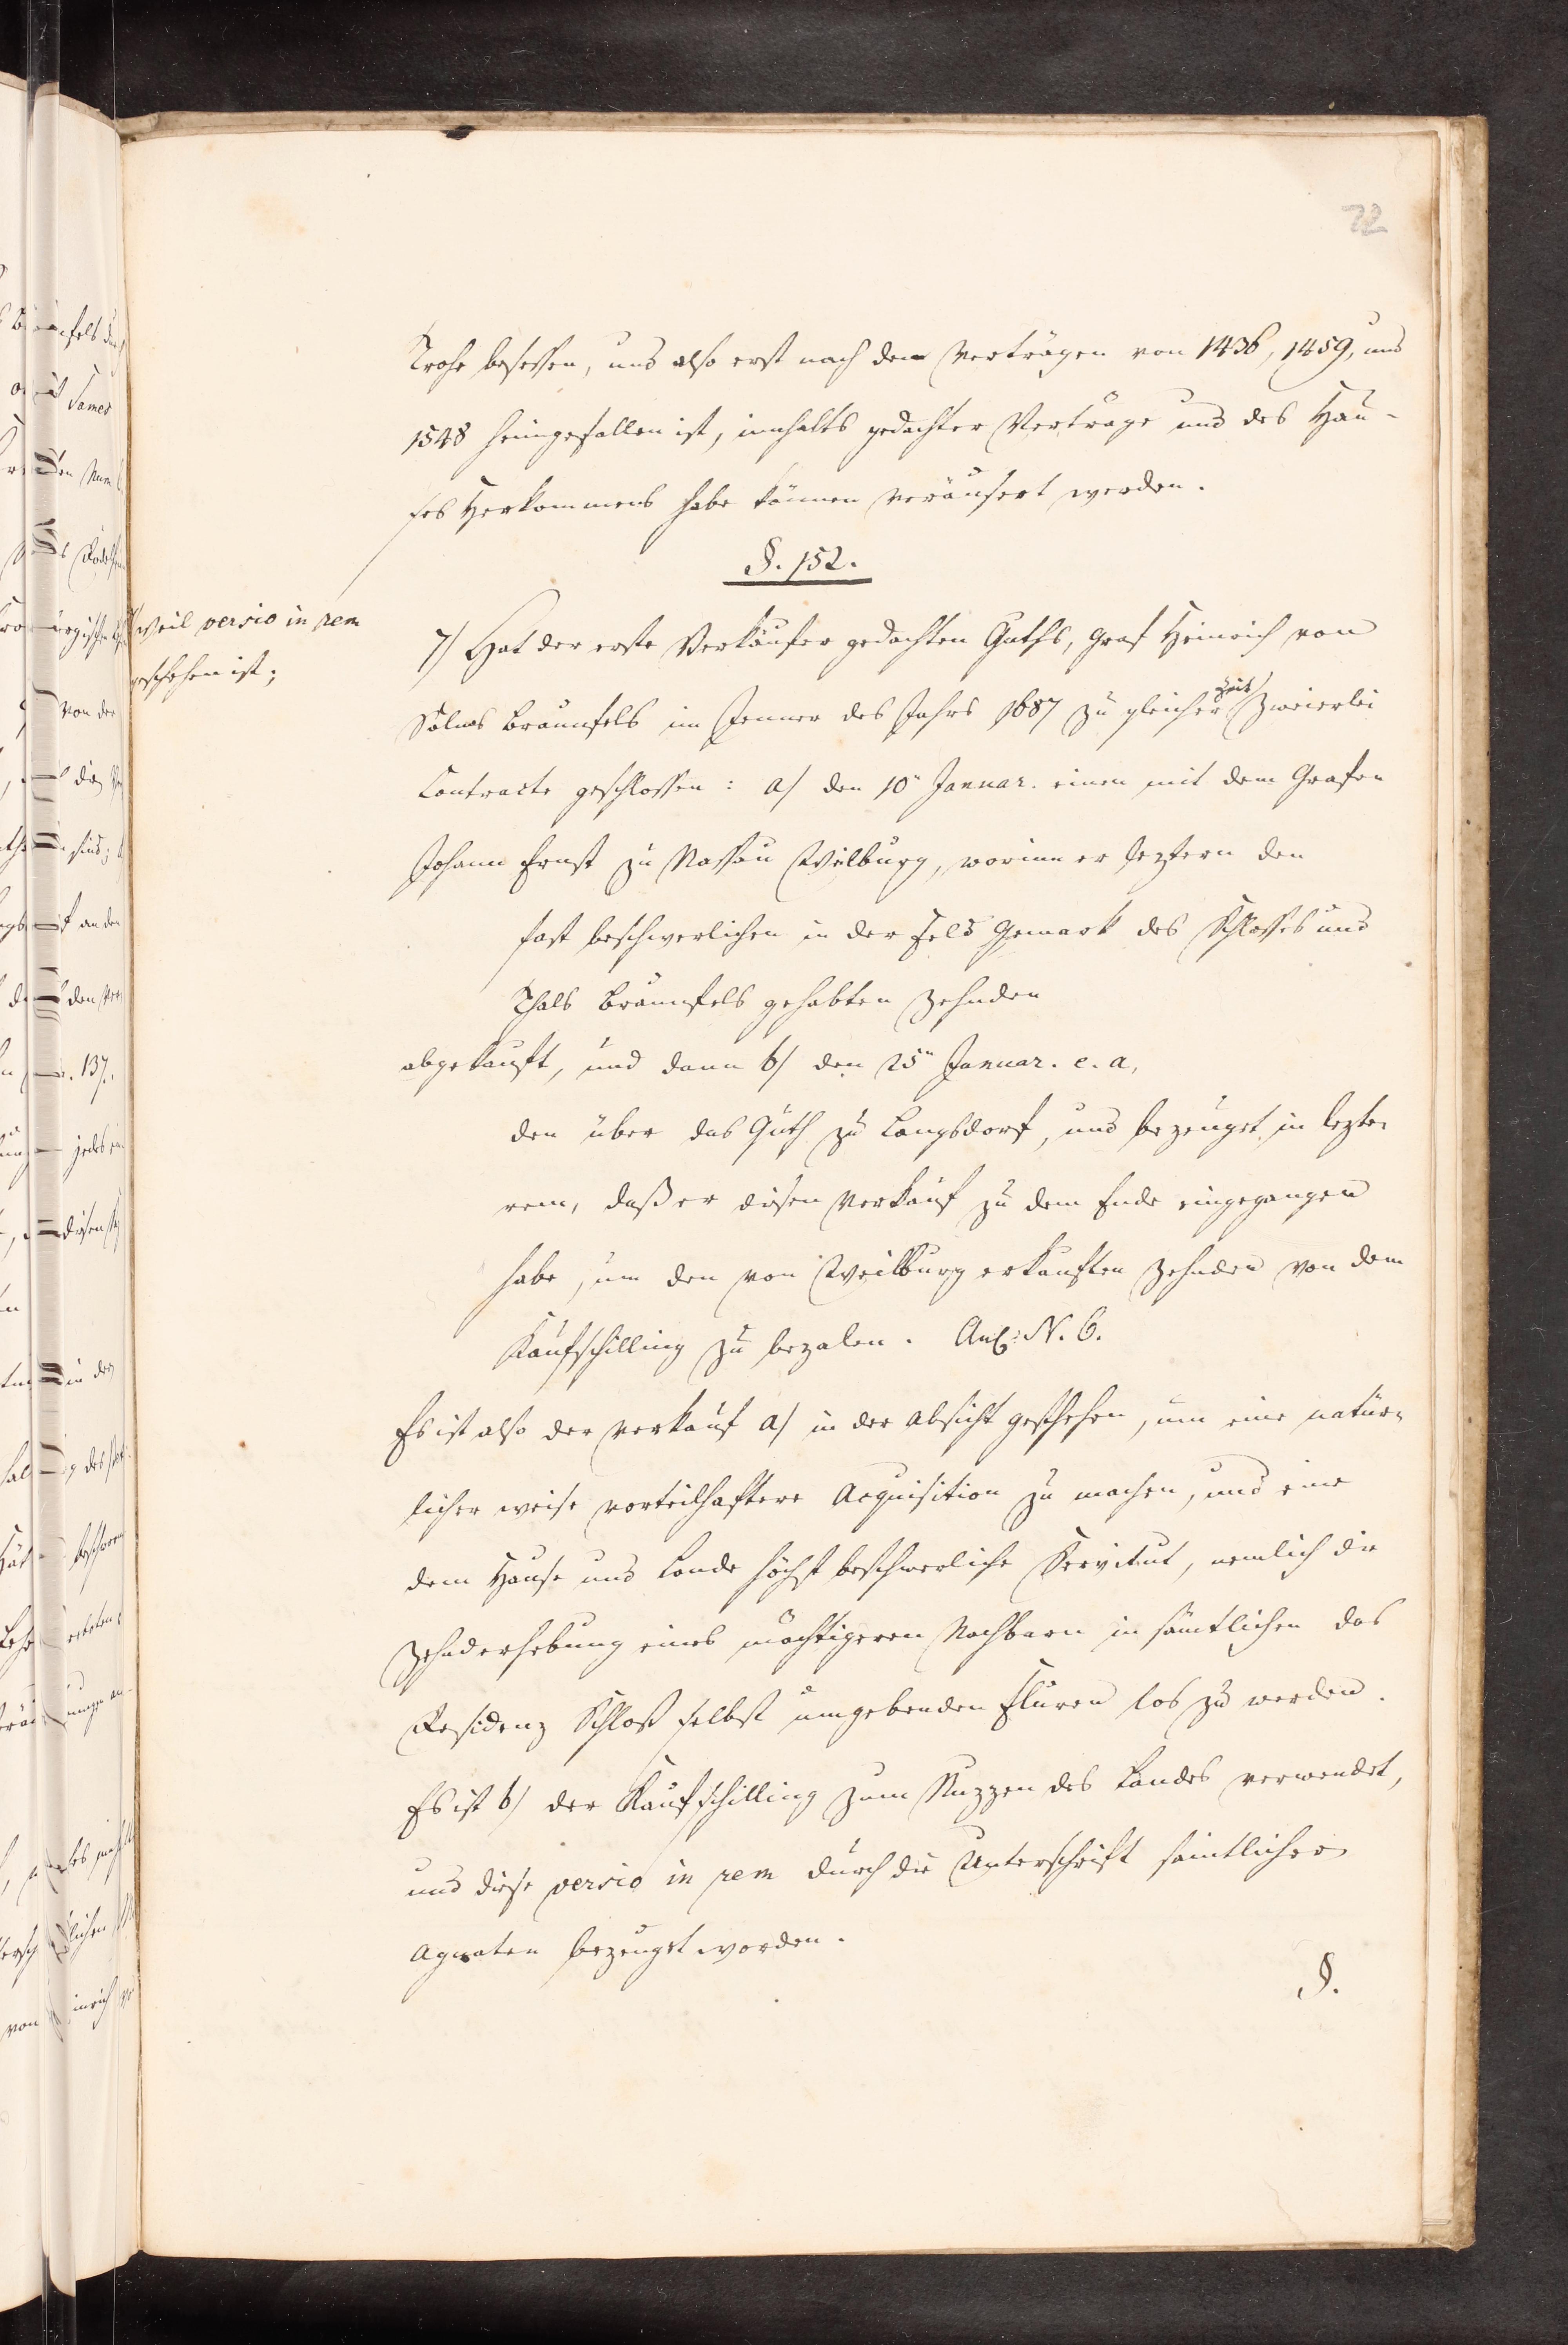 72
Trohe besessen, und also erst nach den Verträgen von 1436, 1459, und
1548 heimgefallen ist, innhalts gedachter Verträge und des Hau-
ses Herkommens habe können veräusert werden.
§. 152.
weil versio in rem
geschehen ist;
7) Hat der erste Verkäufer gedachten Guths, Graf Heinrich von
Solms Braunfels im Jenner des Jahrs 1687 zu gleicher Zeit zweierlei
Contracte geschlossen: a) den 10n Januar. einen mit dem Grafen
Johann Ernst zu Nassau Weilburg, worinn er leztern den
fast beschwerlichen in der Feld Gemark des Schlosses und
Thals Braunfels gehabten Zehnden
abgekauft, und dann b) den 25n Januar. e. a.
den über das Guth zu Langsdorf, und bezeuget in lezte-
rem, daß er diesen Verkauf zu dem Ende eingegangen
habe, um den von Weilburg erkauften Zehnden von dem
Kaufschilling zu bezalen. Anl: N. 6.
Es ist also der Verkauf a) in der Absicht geschehen, um eine natür-
licher weise vorteilhaftere Acquisition zu machen, und eine
dem Hause und Lande höchst beschwerliche Servitut, nemlich die
Zehnderhebung eines mächtigeren Nachbarn in sämtlichen das
Residenz Schloß selbst umgebenden Fluren los zu werden.
Es ist b) der Kaufschilling zum Nuzzen des Landes verwendet,
und diese versio in rem durch die Unterschrift sämtlicher
Agnaten bezeuget worden.
§.